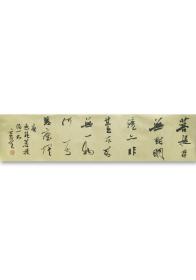 菩提本
無樹明
鏡亦非
臺本來
無一物
何處
惹塵埃